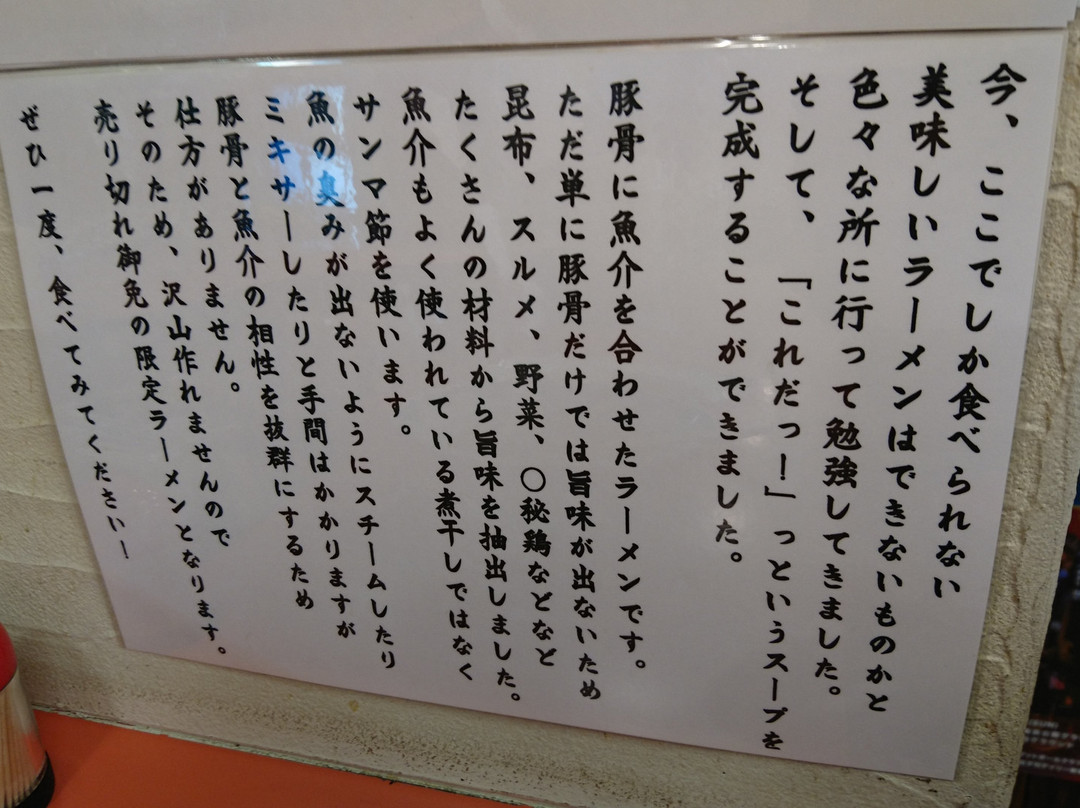 今、ここでしか食べられない
美味しいラーメンはできないものかと
色々な所に行って勉強してきました。
そして、「これだっ！」っというスープを
完成することができました。
豚骨に魚介を合わせたラーメンです。
ただ単に豚骨だけでは旨味が出ないため
昆布、スルメ、野菜、○秘鶏などなど
たくさんの材料から旨味を抽出しました。
魚介もよく使われている煮干しではなく
サンマ節を使います。
魚の臭みが出ないようにスチームしたり
ミキサーしたりと手間はかかりますが
豚骨と魚介の相性を抜群にするため
仕方がありません。
そのため、沢山作れませんので
売り切れ御免の限定ラーメンとなります。
ぜひ一度、食べてみてください！